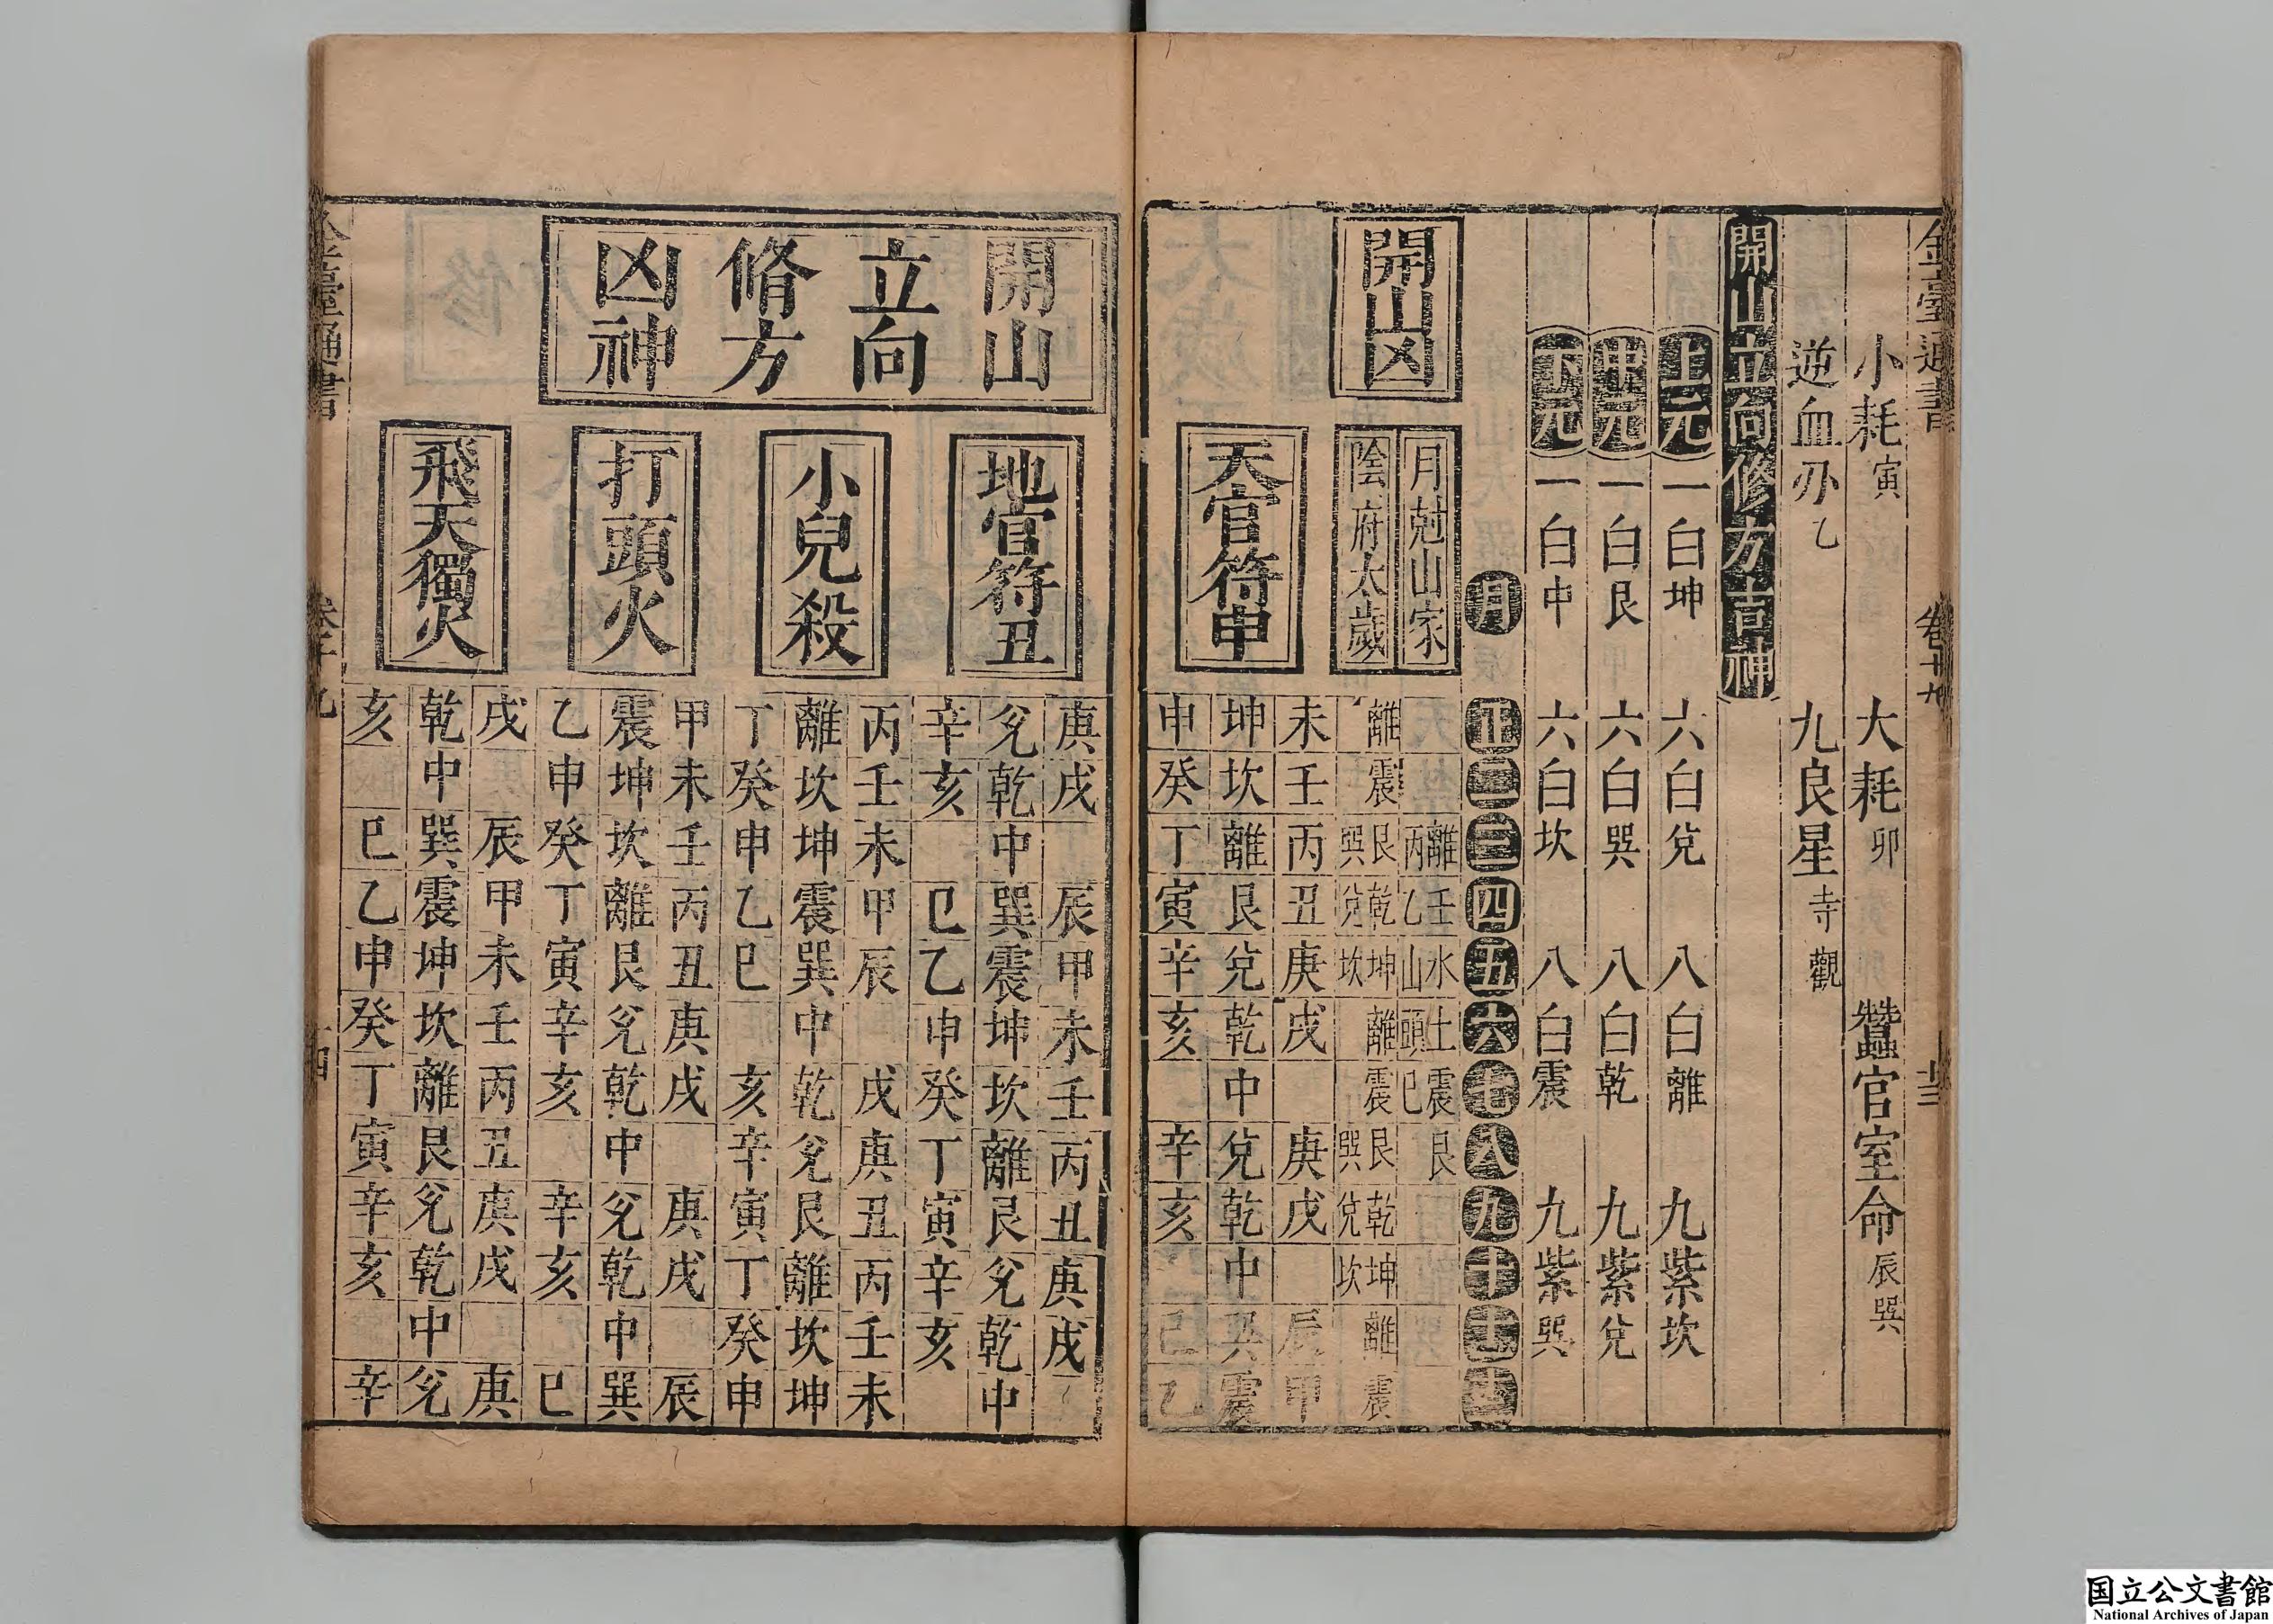 小耗寅　大耗卯　蠶官室命辰巽
逆血刃乙　九良星寺觀
開山立向修方吉神
上元一白坤　六白兌　八白離　九紫坎
中元一白艮　六白巽　八白乾　九紫兌
下元一白中　六白坎　八白震　九紫巽
月　正二三四五六七八九十十一十二
開山凶
月尅山家　離丙　壬乙　水山　土頭　震巳　艮
陰府太歲　離　震　艮巽　乾兌　坤坎　離　震　艮巽　乾兌　坤坎　離　震
天官符申
未壬丙丑庚戌　庚戌　辰甲
坤坎離艮兌乾中兌乾中巽震
申癸丁寅辛亥　辛亥　巳乙
開山
立向
脩方
凶神
地官符丑
庚戌　辰甲未壬丙丑庚戌
兌乾中巽震坤坎離艮兌乾中
辛亥　巳乙申癸丁寅辛亥
小兒殺
丙壬未甲辰　戌庚丑丙壬未
離坎坤震巽中乾兌艮離坎坤
丁癸申乙巳　亥辛寅丁癸申
打頭火
甲未壬丙丑庚戌　庚戌　辰
震坤坎離艮兌乾中兌乾中巽
乙申癸丁寅辛亥　辛亥　巳
飛天獨火
戌　辰甲未壬丙丑庚戌　庚
乾中巽震坤坎離艮兌乾中兌
亥　巳乙申癸丁寅辛亥　辛
国立公文書館
National Archives of Japan